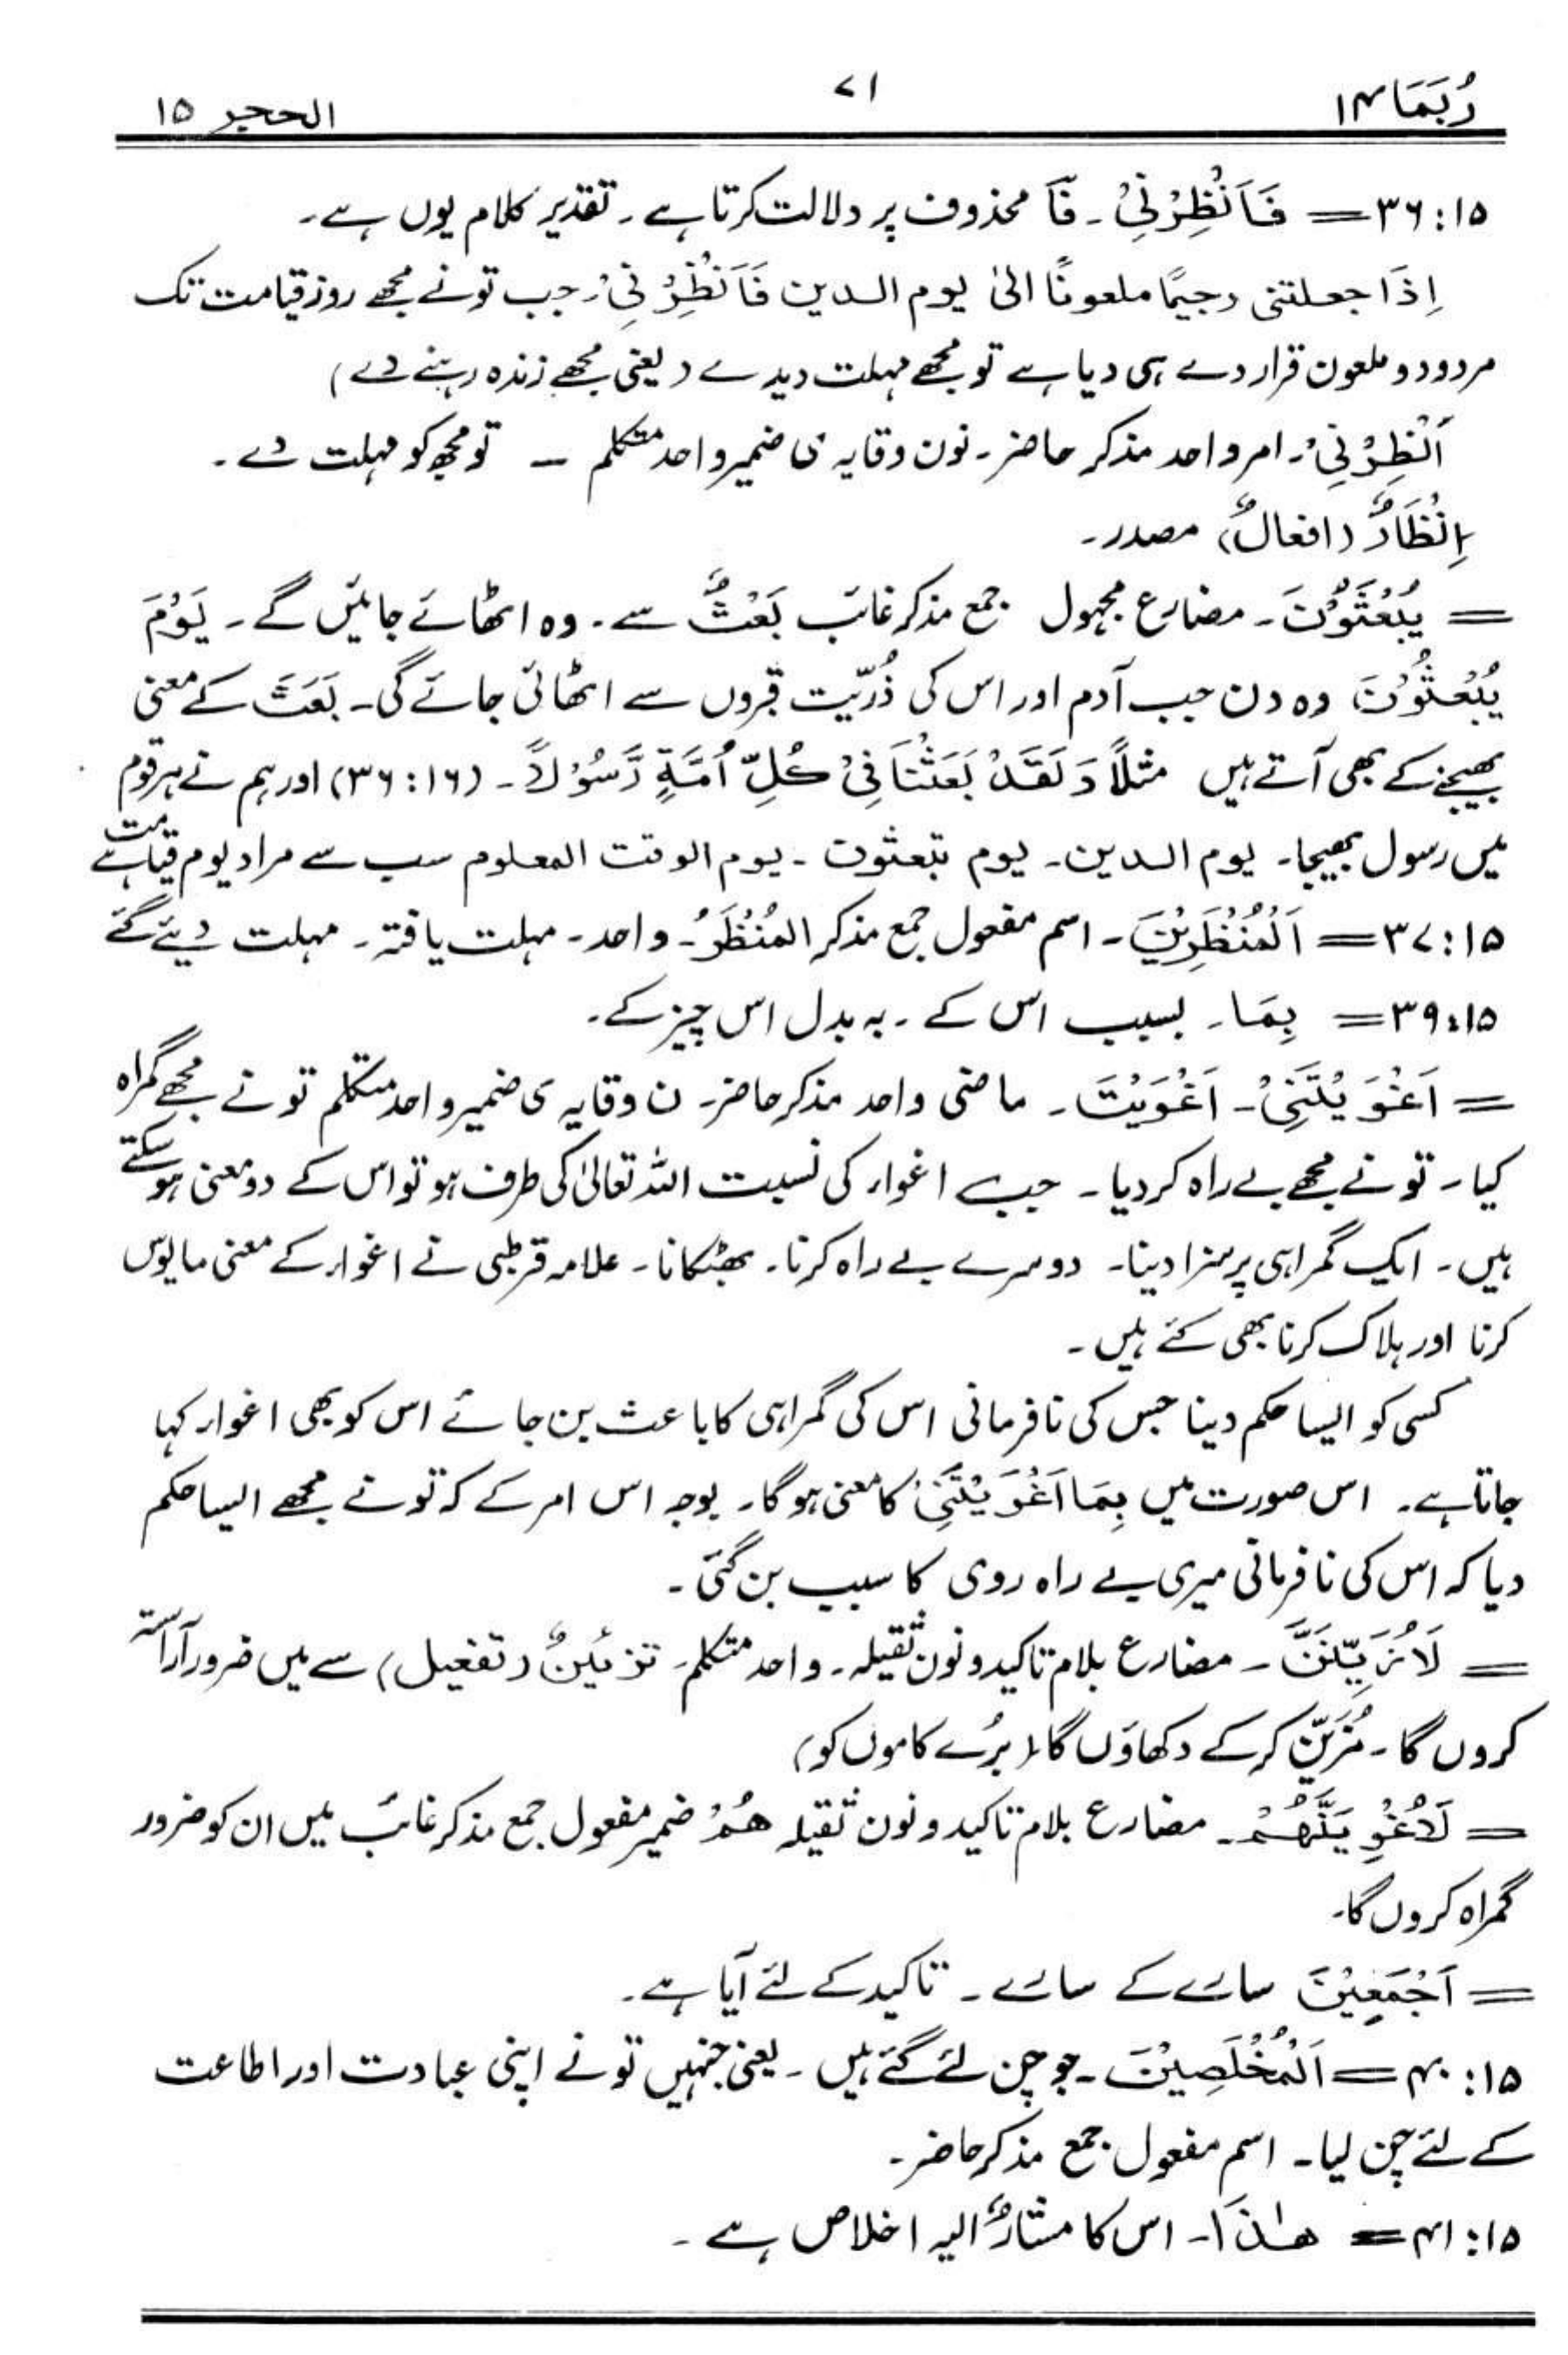 رُبَمَا ۱۴
۷۱
الحجر ۱۵
۱۵:۳۶ = فَاَنْظِرْنِیْ۔ فَآ محذوف پر دلالت کرتا ہے۔ تقدیر کلام یوں ہے۔
اِذَا جعلتنی رجیمًا ملعونًا الیٰ یوم الدین فَاَنْظِرْنِیْ۔ جب تو نے مجھے روز قیامت تک
مردود و ملعون قرار دے ہی دیا ہے تو مجھے مہلت دیدے (یعنی مجھے زندہ رہنے دے)
اَنْظِرْنِیْ۔ امر واحد مذکر حاضر۔ نون وقایہ ی ضمیر واحد متکلم ــ تو مجھ کو مہلت دے۔
اِنْظَارٌ (افعالٌ) مصدر۔
= یُبْعَثُوْنَ۔ مضارع مجہول جمع مذکر غائب بَعْثٌ سے۔ وہ اٹھائے جائیں گے۔ یَوْمَ
یُبْعَثُوْنَ وہ دن جب آدم اور اس کی ذُرّیت قبروں سے اٹھائی جائے گی۔ بَعَثَ کے معنی
بھیجنے کے بھی آتے ہیں مثلاً وَلَقَدْ بَعَثْنَا فِیْ کُلِّ اُمَّةٍ رَّسُوْلاً۔ (۱۶:۳۶) اور ہم نے ہر قوم
میں رسول بھیجا۔ یوم الدین۔ یوم تبعثون۔ یوم الوقت المعلوم سب سے مراد یوم قیامت ہے
۱۵:۳۷ = اَلْمُنْظَرِیْنَ۔ اسم مفعول جمع مذکر المُنْظَرُ۔ واحد۔ مہلت یافتہ۔ مہلت دیئے گئے
۱۵:۳۹ = بِمَا۔ بسبب اس کے۔ بہ بدل اس چیز کے۔
= اَغْوَیْتَنِیْ۔ اَغْوَیْتَ۔ ماضی واحد مذکر حاضر۔ ن وقایہ ی ضمیر واحد متکلم تو نے مجھے گمراہ
کیا۔ تو نے مجھے بے راہ کر دیا۔ جب اغوار کی نسبت اللہ تعالیٰ کی طرف ہو تو اس کے دو معنی ہو سکتے
ہیں۔ ایک گمراہی پر سزا دینا۔ دوسرے بے راہ کرنا۔ بھٹکانا۔ علامہ قرطبی نے اغوار کے معنی مایوس
کرنا اور ہلاک کرنا بھی کئے ہیں۔
کسی کو ایسا حکم دینا جس کی نافرمانی اس کی گمراہی کا باعث بن جائے اس کو بھی اغوار کہا
جاتا ہے۔ اس صورت میں بِمَا اَغْوَیْتَنِیْ کا معنی ہوگا۔ بوجہ اس امر کے کہ تو نے مجھے ایسا حکم
دیا کہ اس کی نافرمانی میری بے راہ روی کا سبب بن گئی۔
= لَاُزَیِّنَنَّ۔ مضارع بلام تاکید و نون ثقیلہ۔ واحد متکلم۔ تَزْئِیْنٌ (تفعیل) سے میں ضرور آراستہ
کروں گا۔ مُزیّن کر کے دکھاؤں گا (بُرے کاموں کو)
= لَاُغْوِیَنَّھُمْ۔ مضارع بلام تاکید و نون ثقیلہ ھُمْ ضمیر مفعول جمع مذکر غائب میں ان کو ضرور
گمراہ کروں گا۔
= اَجْمَعِیْنَ سارے کے سارے۔ تاکید کے لئے آیا ہے۔
۱۵:۴۰ = اَلْمُخْلَصِیْنَ۔ جو چن لئے گئے ہیں۔ یعنی جنہیں تو نے اپنی عبادت اور اطاعت
کے لئے چن لیا۔ اسم مفعول جمع مذکر حاضر۔
۱۵:۴۱ = ھٰذَا۔ اس کا مشارٌ الیہ اخلاص ہے۔